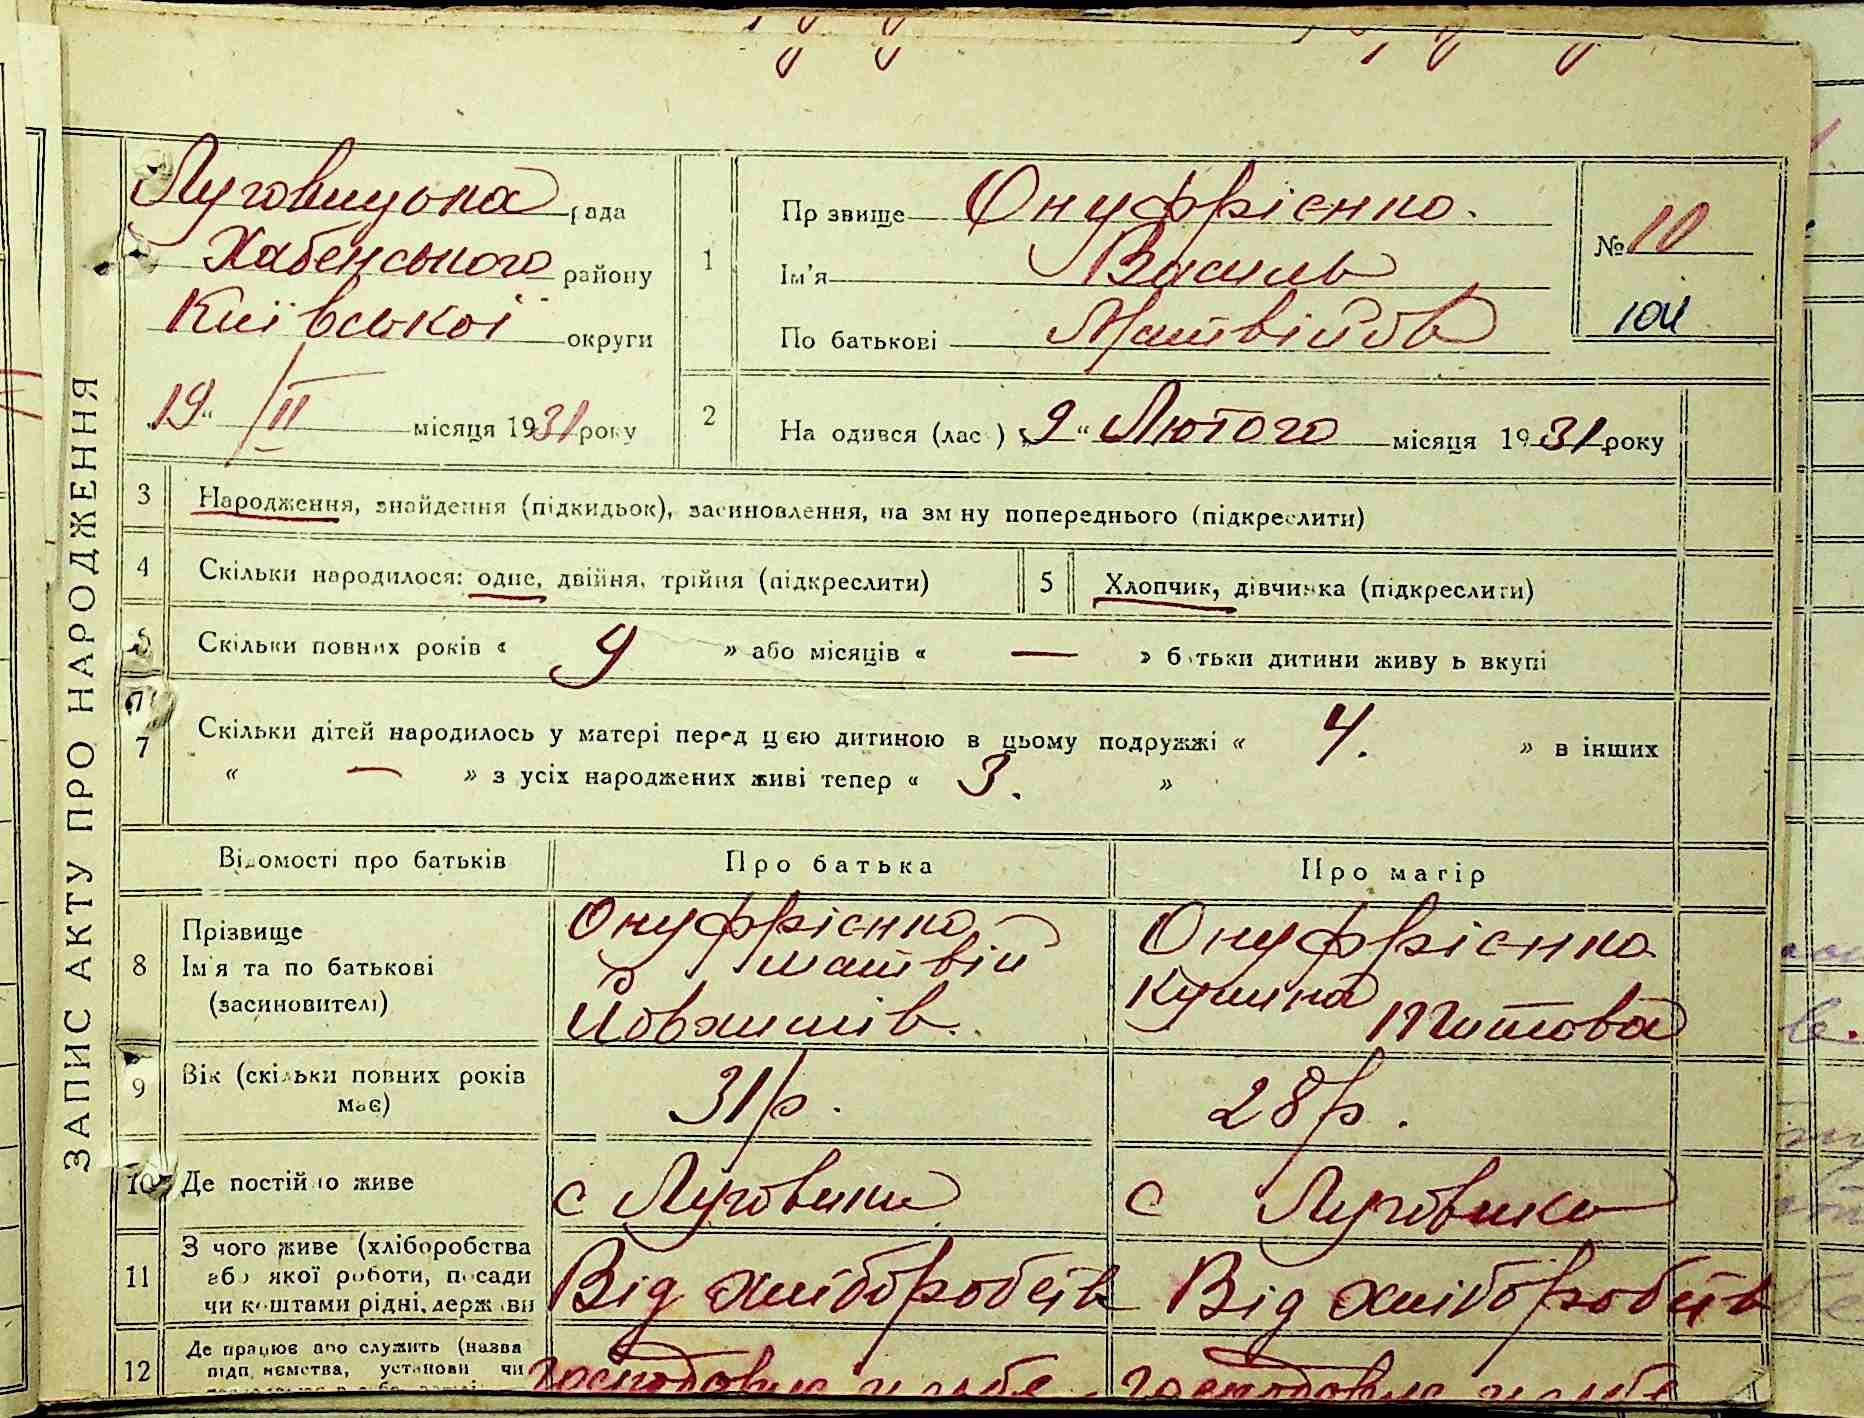 ЗАПИС АКТУ ПРО НАРОДЖЕННЯ
Луговицька рада
Хабенського району
Київської округи
„19“ /II місяця 1931 року
1
Прзвище Онуфрієнко.
Ім'я Василь
По батькові Матвійов
№ 10
104
2
Народився (лас.) „9“ Лютого місяця 1931 року
3 Народження, знайдення (підкидьок), засиновлення, на зміну попереднього (підкреслити)
4 Скільки народилося: одне, двійня, трійня (підкреслити)
5 Хлопчик, дівчинка (підкреслити)
6 Скільки повних років « 9 » або місяців « — » батьки дитини живуть вкупі
7 Скільки дітей народилось у матері перед цією дитиною в цьому подружжі « 4. » в інших
« — » з усіх народжених живі тепер « 3. »
Відомості про батьків Про батька Про матір
8 Прізвище
Ім'я та по батькові
(засиновителі)
Онуфрієнко
Матвій
Йовхимів.
Онуфрієнко
Титова
9 Вік (скільки повних років має) 31/р. 28/р.
10 Де постійно живе с Луговики с Луговики
11 З чого живе (хліборобства
або якої роботи, посади
чи коштами рідні, держави
Від хліборобств Від хліборобств
12 Де працює або служить (назва
підприємства, установи чи
господовує у себе господовує у себе